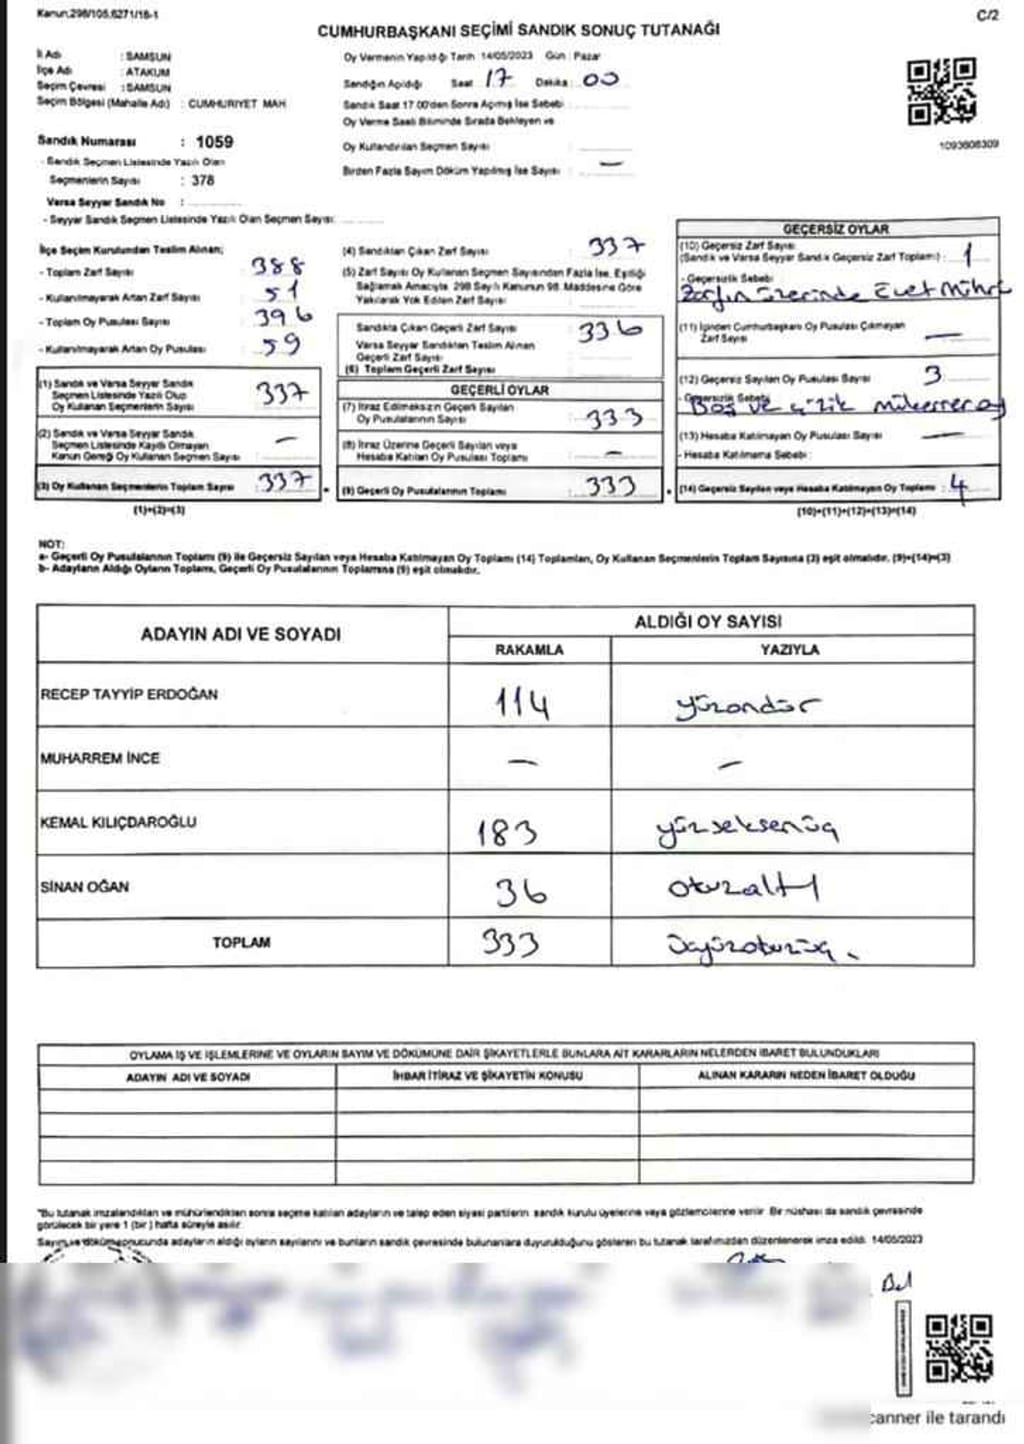 Kanun:298/105,6271/16-1
C/2
CUMHURBAŞKANI SEÇİMİ SANDIK SONUÇ TUTANAĞI
İl Adı : SAMSUN
İlçe Adı : ATAKUM
Seçim Çevresi : SAMSUN
Seçim Bölgesi (Mahalle Adı) : CUMHURİYET MAH
Sandık Numarası : 1059
- Sandık Seçmen Listesinde Yazılı Olan
Seçmenlerin Sayısı : 378
Varsa Seyyar Sandık No :
- Seyyar Sandık Seçmen Listesinde Yazılı Olan Seçmen Sayısı:
Oy Vermenin Yapıldığı Tarih : 14/05/2023 Gün : Pazar
Sandığın Açıldığı Saat 17 Dakika : 00
Sandık Saat 17.00'den Sonra Açılmış İse Sebebi :
Oy Verme Saati Bitiminde Sırada Bekleyen ve
Oy Kullandırılan Seçmen Sayısı :
Birden Fazla Sayım Döküm Yapılmış İse Sayısı : —
1093608309
İlçe Seçim Kurulundan Teslim Alınan;
- Toplam Zarf Sayısı : 388
- Kullanılmayarak Artan Zarf Sayısı : 51
- Toplam Oy Pusulası Sayısı : 396
- Kullanılmayarak Artan Oy Pusulası : 59
(1) Sandık ve Varsa Seyyar Sandık
Seçmen Listesinde Yazılı Olup
Oy Kullanan Seçmenlerin Sayısı : 337
(2) Sandık ve Varsa Seyyar Sandık
Seçmen Listesinde Kayıtlı Olmayan
Kanun Gereği Oy Kullanan Seçmen Sayısı : —
(3) Oy Kullanan Seçmenlerin Toplam Sayısı : 337
(1)+(2)=(3)
(4) Sandıktan Çıkan Zarf Sayısı : 337
(5) Zarf Sayısı Oy Kullanan Seçmen Sayısından Fazla İse, Eşitliği
Sağlamak Amacıyla 298 Sayılı Kanunun 98. Maddesine Göre
Yakılarak Yok Edilen Zarf Sayısı :
Sandıkta Çıkan Geçerli Zarf Sayısı : 336
Varsa Seyyar Sandıktan Teslim Alınan
Geçerli Zarf Sayısı :
(6) Toplam Geçerli Zarf Sayısı :
GEÇERLİ OYLAR
(7) İtiraz Edilmeksizin Geçerli Sayılan
Oy Pusulalarının Sayısı : 333
(8) İtiraz Üzerine Geçerli Sayılan veya
Hesaba Katılan Oy Pusulası Toplamı : —
(9) Geçerli Oy Pusulalarının Toplamı : 333
GEÇERSİZ OYLAR
(10) Geçersiz Zarf Sayısı
(Sandık ve Varsa Seyyar Sandık Geçersiz Zarf Toplamı) : 1
- Geçersizlik Sebebi
Zarfın üzerinde Evet Mührü
(11) İçinden Cumhurbaşkanı Oy Pusulası Çıkmayan
Zarf Sayısı : —
(12) Geçersiz Sayılan Oy Pusulası Sayısı : 3
- Geçersizlik Sebebi
Boş ve çizik mükerrer oy
(13) Hesaba Katılmayan Oy Pusulası Sayısı : —
- Hesaba Katılmama Sebebi :
(14) Geçersiz Sayılan veya Hesaba Katılmayan Oy Toplamı : 4
(10)+(11)+(12)+(13)=(14)
NOT:
a- Geçerli Oy Pusulalarının Toplamı (9) ile Geçersiz Sayılan veya Hesaba Katılmayan Oy Toplamı (14) Toplamları, Oy Kullanan Seçmenlerin Toplam Sayısına (3) eşit olmalıdır. (9)+(14)=(3)
b- Adayların Aldığı Oyların Toplamı, Geçerli Oy Pusulalarının Toplamına (9) eşit olmalıdır.
ADAYIN ADI VE SOYADI
ALDIĞI OY SAYISI
RAKAMLA YAZIYLA
RECEP TAYYİP ERDOĞAN 114 yüzondör
MUHARREM İNCE — —
KEMAL KILIÇDAROĞLU 183 yüzseksenüç
SİNAN OĞAN 36 otuzaltı
TOPLAM 333 üçyüzotuzüç.
OYLAMA İŞ VE İŞLEMLERİNE VE OYLARIN SAYIM VE DÖKÜMÜNE DAİR ŞİKAYETLERLE BUNLARA AİT KARARLARIN NELERDEN İBARET BULUNDUKLARI
ADAYIN ADI VE SOYADI İHBAR İTİRAZ VE ŞİKAYETİN KONUSU ALINAN KARARIN NEDEN İBARET OLDUĞU
"Bu tutanak imzalandıktan ve mühürlendikten sonra seçime katılan adayların ve talep eden siyasi partilerin sandık kurulu üyelerine veya gözlemcilerine verilir. Bir nüshası da sandık çevresinde
görülecek bir yere 1 (bir) hafta süreyle asılır.
Sayım ve döküm sonucunda adayların aldığı oyların sayılarını ve bunların sandık çevresinde bulunanlara duyurulduğunu gösteren bu tutanak tarafımızdan düzenlenerek imza edildi. 14/05/2023
canner ile tarandı